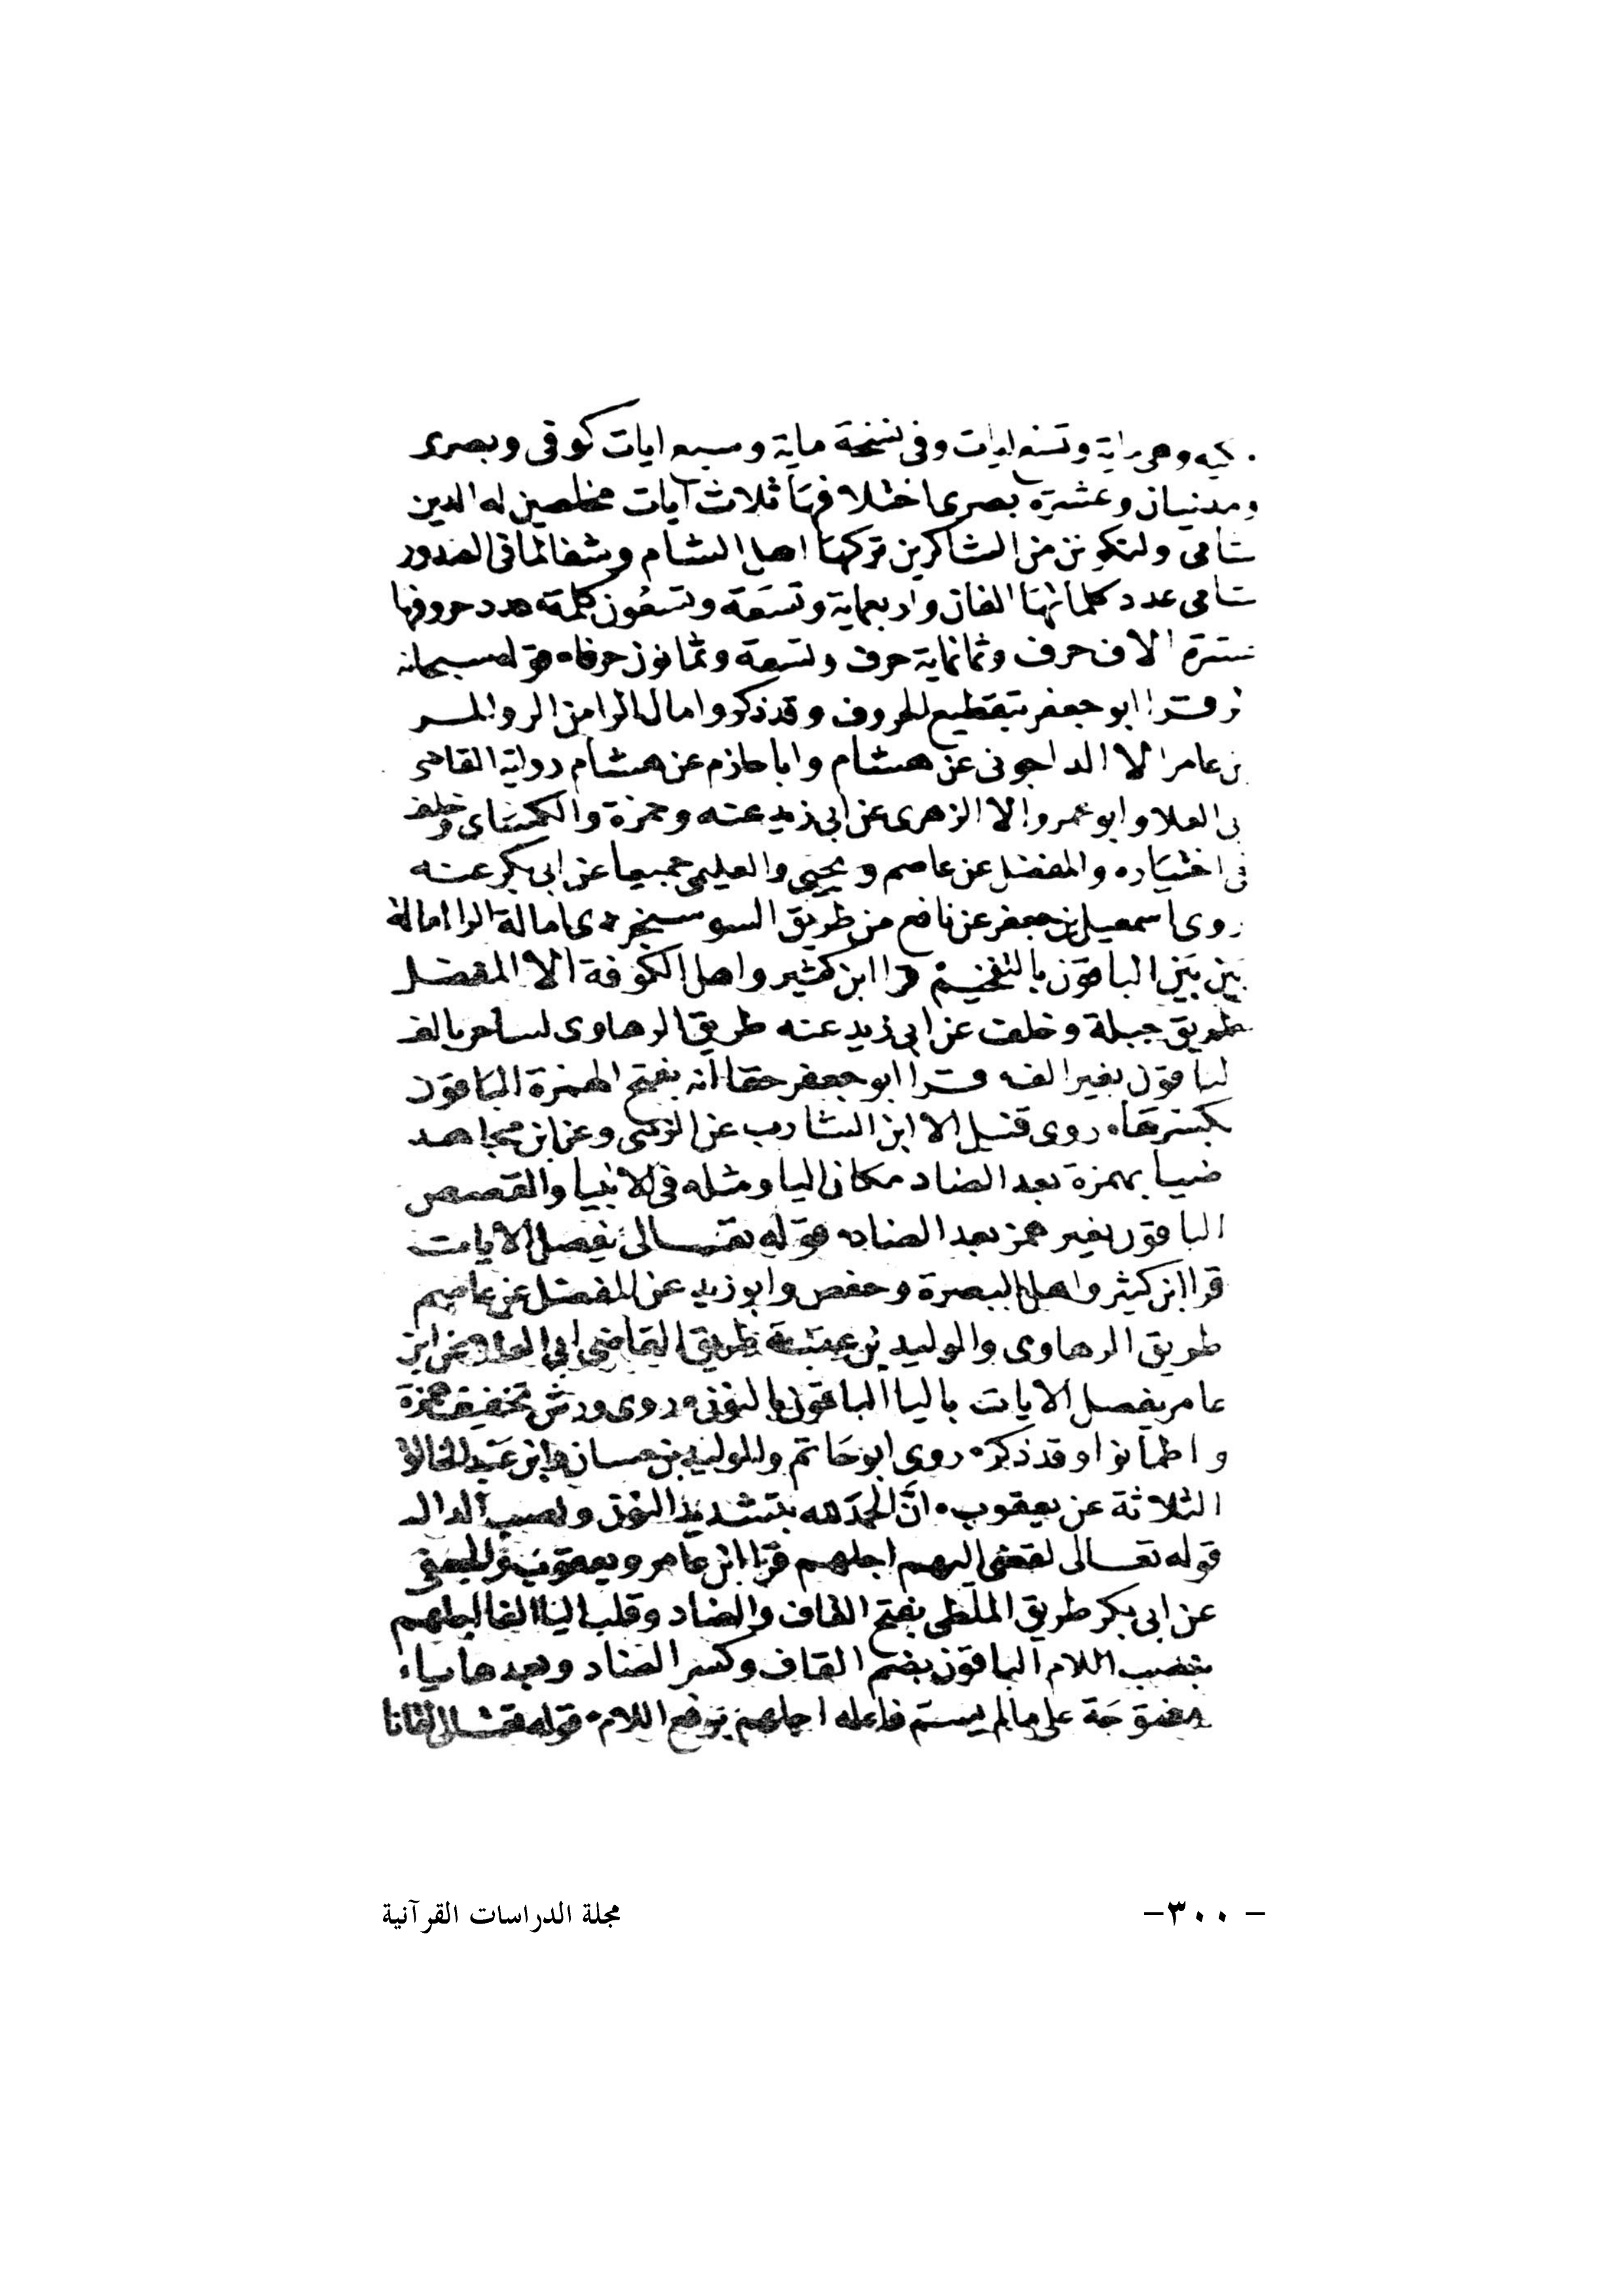 مكيه وهي ماية وتسع ايات وفي نسخة ماية وسبع ايات كوفي وبصرى
ومدنيان وعشرة بصرى اختلافها ثلاث آيات مخلصين له الدين
شامى ولنكونن من الشاكرين تركها اهل الشام وشفا لما في الصدور
شامى عدد كلماتها الفان واربعماية وتسعة وتسعون كلمة عدد حروفها
ستة الاف حرف وثمانماية حرف وتسعة وثمانون حرفا۰ قوله سبحانه
الر قرا ابو جعفر بتقطيع الحروف وقد ذكر وامال الرا من الر والمر
بن عامر الا الداجونى عن هشام وابا حازم عن هشام رواية القاضى
بى العلا وابو عمرو الا الزهرى عن ابى زيد عنه وحمزة والكسائى وخلف
فى اختياره والمفضل عن عاصم ويحيى والعليمى جميعا عن ابى بكر عنه
روى اسمعيل بن جعفر عن نافع من طريق السوسنجردى امالة الرا امالة
بين بين الباقون بالتفخيم قرا ابن كثير واهل الكوفة الا المفضل
طريق جبلة وخلف عن ابى زيد عنه طريق الرهاوى لساحر بالف
لباقون بغير الف قرا ابو جعفر حقا انه بفتح الهمزة الباقون
بكسرها۰ روى قنبل الا ابن الشارب عن الزينبى وعن ابن مجاهد
ضيا بهمزة بعد الضاد مكان اليا ومثله فى الانبيا والقصص
الباقون بغير همز بعد الضاد۰ قوله تعالى يفصل الايات
قرا ابن كثير واهل البصرة وحفص وابو زيد عن المفضل عن عاصم
طريق الرهاوى والوليد بن عتبة طريق القاضى ابى العلا عن ابن
عامر يفصل الايات باليا الباقون بالنون۰ روى ورش تخفيف همزة
واطمانوا وقد ذكر۰ روى ابو حاتم والوليد بن حسان وابن عبد الخالق
الثلاثة عن يعقوب۰ انَّ الحمدَ لله بتشديد النون ونصب الدال
قوله تعالى لقضى اليهم اجلهم قرا ابن عامر ويعقوب والجعفى
عن ابى بكر طريق الملطى بفتح القاف والضاد وقلب اليا الفا اجلهم
بنصب اللام الباقون بضم القاف وكسر الضاد وبعدها ياء
مفتوحة على ما لم يسم فاعله اجلهم برفع اللام۰ قوله تعالى لقانا
مجلة الدراسات القرآنية
- ٣٠٠ -